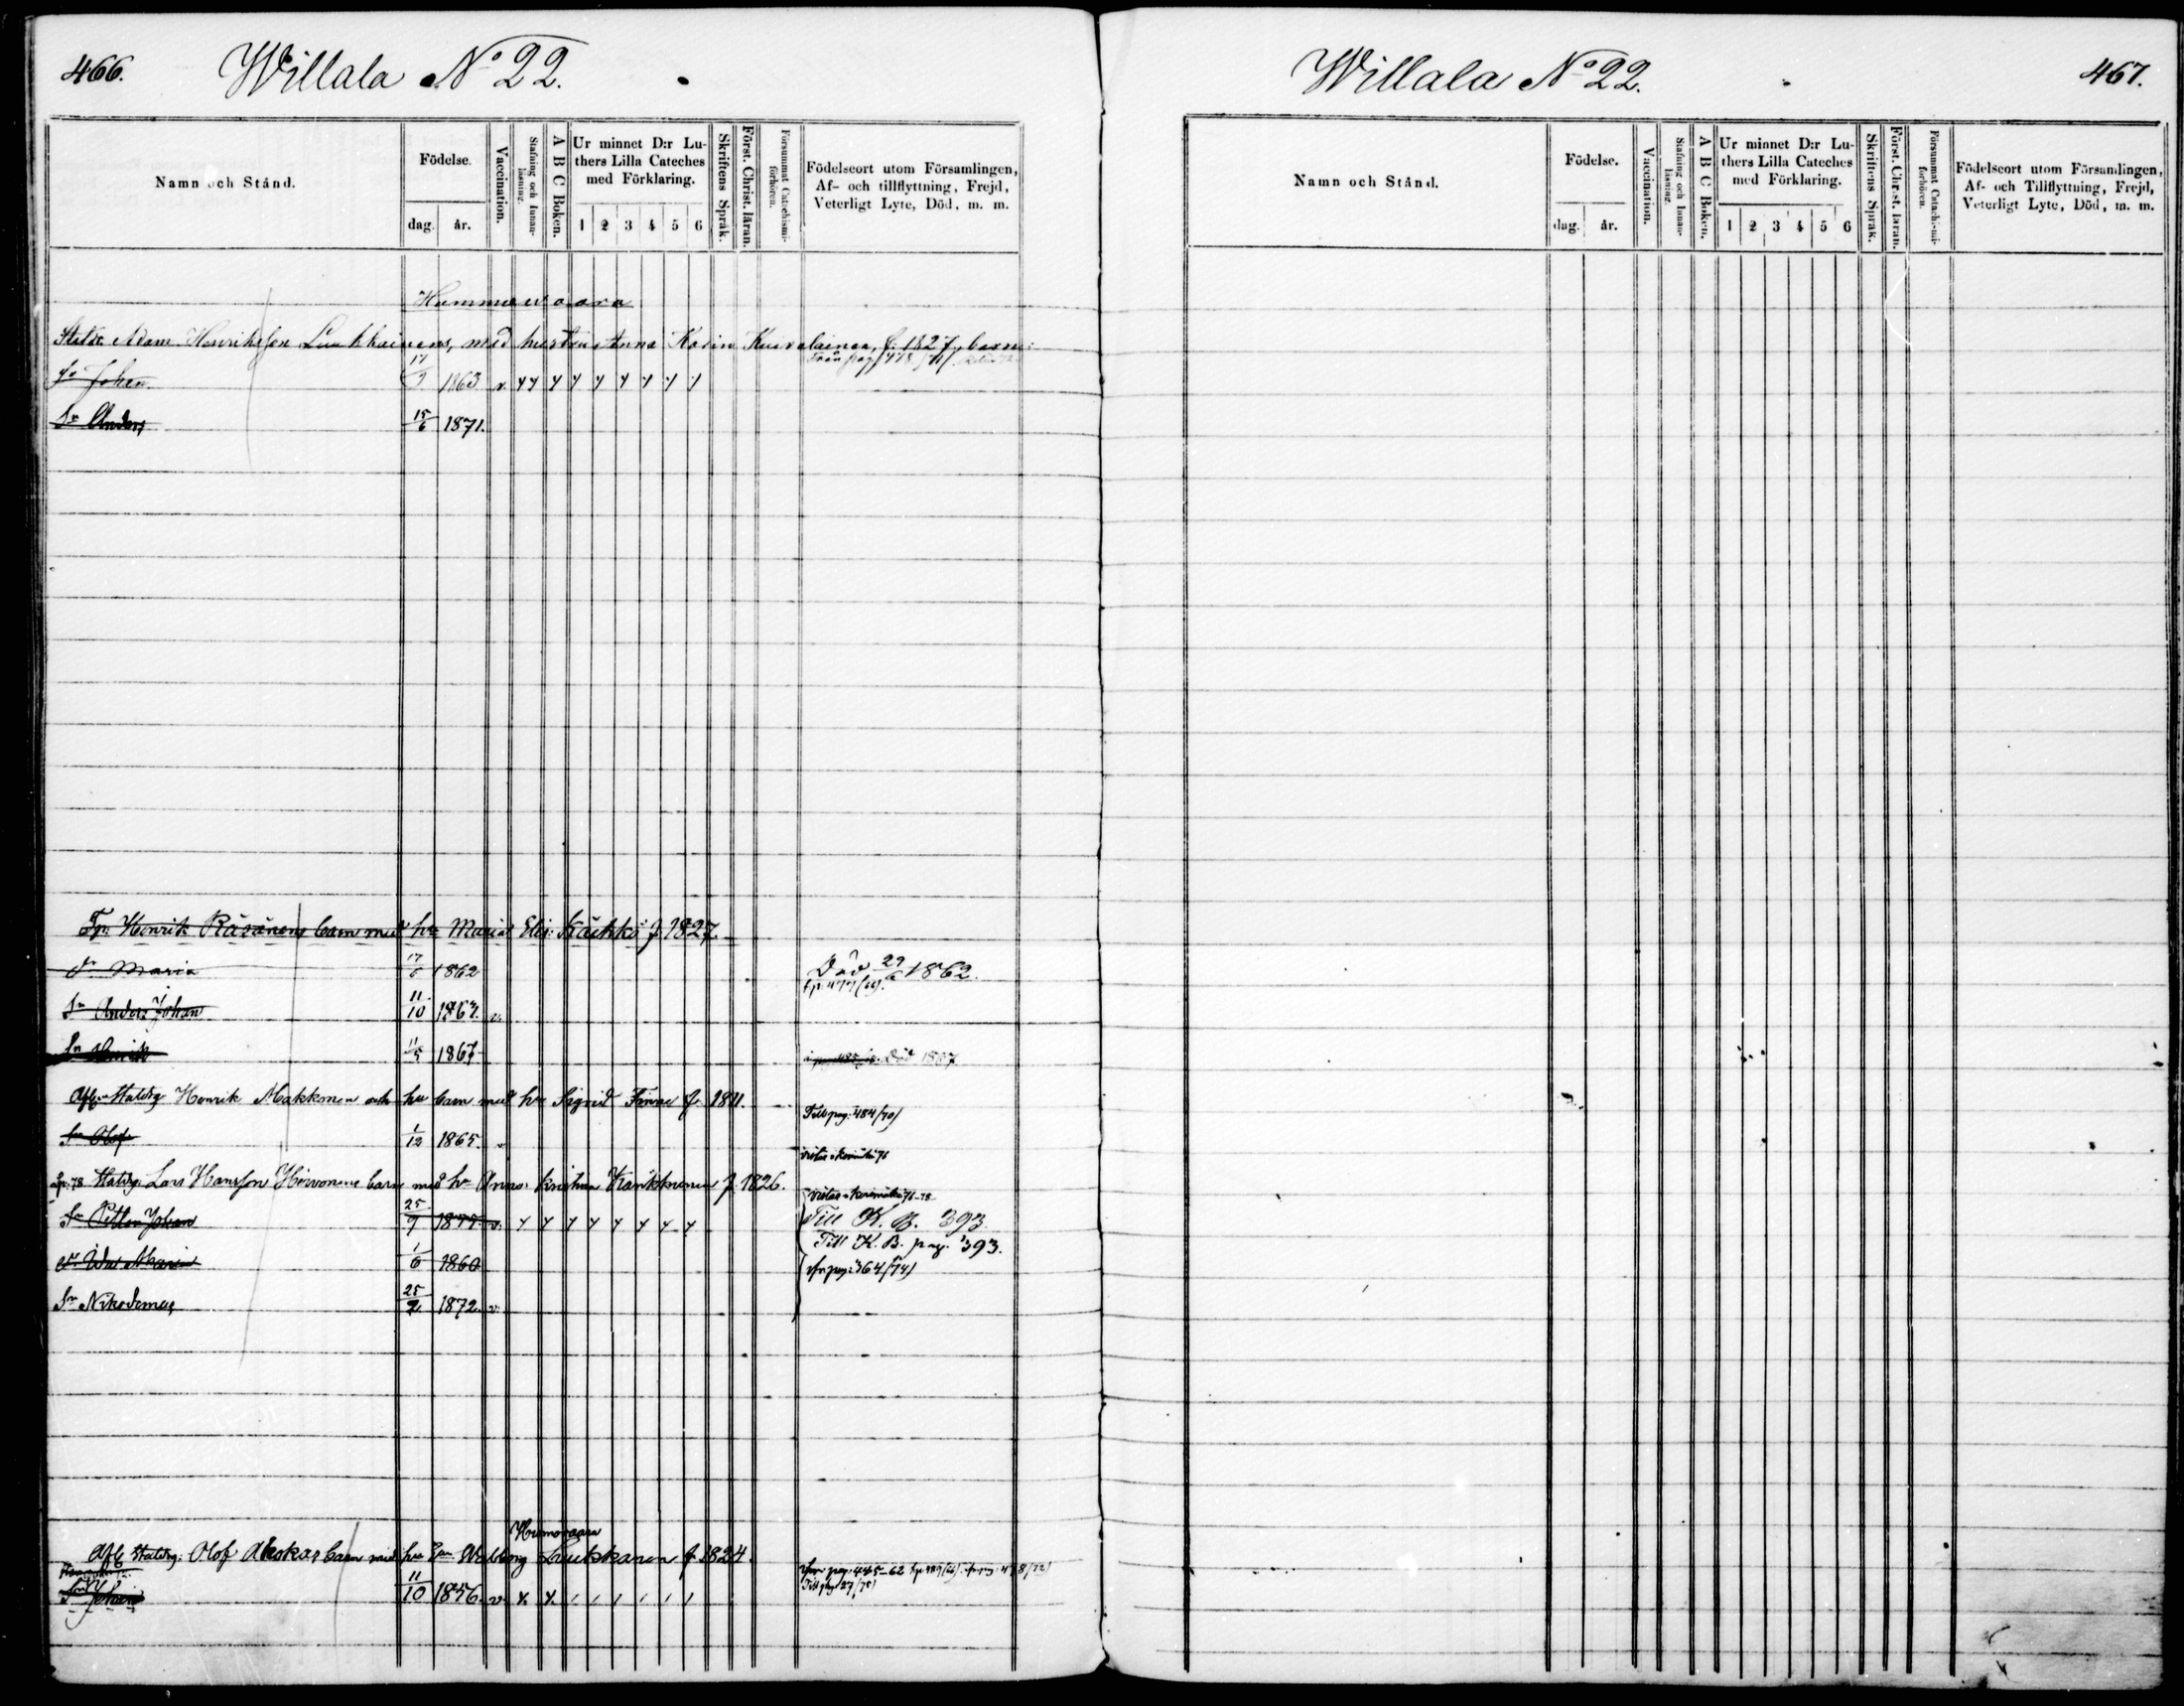 466. Willala No 22.
Namn och Stånd.
Födelse.
dag. år.
Vaccination.
Stafning och Innanläsning.
A B C Boken.
Ur minnet D:r Luthers Lilla Cateches med Förklaring.
1 2 3 4 5 6
Skriftens Språk.
Först. Christ. läran.
Försummat Catechismiförhören.
Födelseort utom Församlingen, Af- och tillflyttning, Frejd, Veterligt Lyte, Död, m. m.
Hummuwaara
Adam Henriksson Luukkainens, med hustru Anna Karin Kuwalainen, f. 1827, barn:
Från pag 478/71
Johan 17/9 1863 v.
Sn Anders 15/6 1871.
Henrik Räsänens barn med hu Maria Elis: Käikkö f. 1827.
dr Maria 17/6 1862 Död 29/6 1862.
Sn Anders Johan 11/10 1864. v.
Sn Henrik 11/5 1867 Död 1867
Afl. Stattrg Henrik Makkonen och hu barn med hu Sigrid Finne f. 1811.
Till pag: 484/70)
Sn Olof 1/12 1865. v
Lars Hansson Hirvonens barn med hu Anna Kristina Känkkunen f. 1826.
vistas i Kerimäki 71-78
Sn Petter Johan 25/9 v. Till K. B. 393.
Till K. B. pag. 393.
dr Ida Maria 1/6 1860 pag: 364/74)
Sn Nikodemus 25/2 1872. v.
Humovaara
Afl Stattrg: Olof barn med hu Walborg Luukkanen f. 1824.
pag: 445-62
Till pag 27/75)
Sn Johan 11/10 1856. v.
Willala No 22. 467.
Namn och Stånd.
Födelse.
dag. år.
Vaccination.
Stafning och Innanläsning.
A B C Boken.
Ur minnet D:r Luthers Lilla Cateches med Förklaring.
1 2 3 4 5 6
Skriftens Språk.
Först. Christ. läran.
Försummat Catechismiförhören.
Födelseort utom Församlingen, Af- och Tillflyttning, Frejd, Veterligt Lyte, Död, m. m.